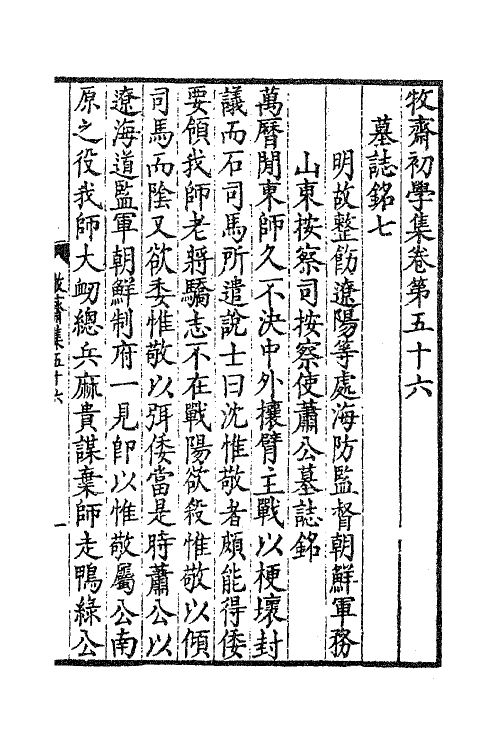 牧齋初學集卷第五十六
墓誌銘七
明故整飭遼陽等處海防監督朝鮮軍務
山東按察司按察使蕭公墓誌銘
萬曆閒東師久不決中外攘臂主戰以梗壞封
議而石司馬所遣說士曰沈惟敬者頗能得倭
要領我師老將驕志不在戰陽欲殺惟敬以傾
司馬而陰又欲委惟敬以弭倭當是時蕭公以
遼海道監軍朝鮮制府一見卽以惟敬屬公南
原之役我師大衂總兵麻貴謀棄師走鴨綠公
牧齋集五十六
一